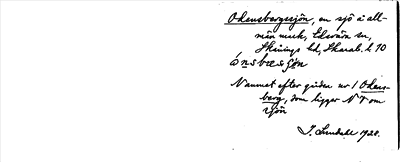 Odensbergssjön, en sjö å all-
män mark, Edsvära sn,
Skånings hd, Skarab. l. 10
ónsbæsjön
Namnet efter gården nr 1 Odens-
berg, som ligger N V om
sjön
J. Lundahl 1920.